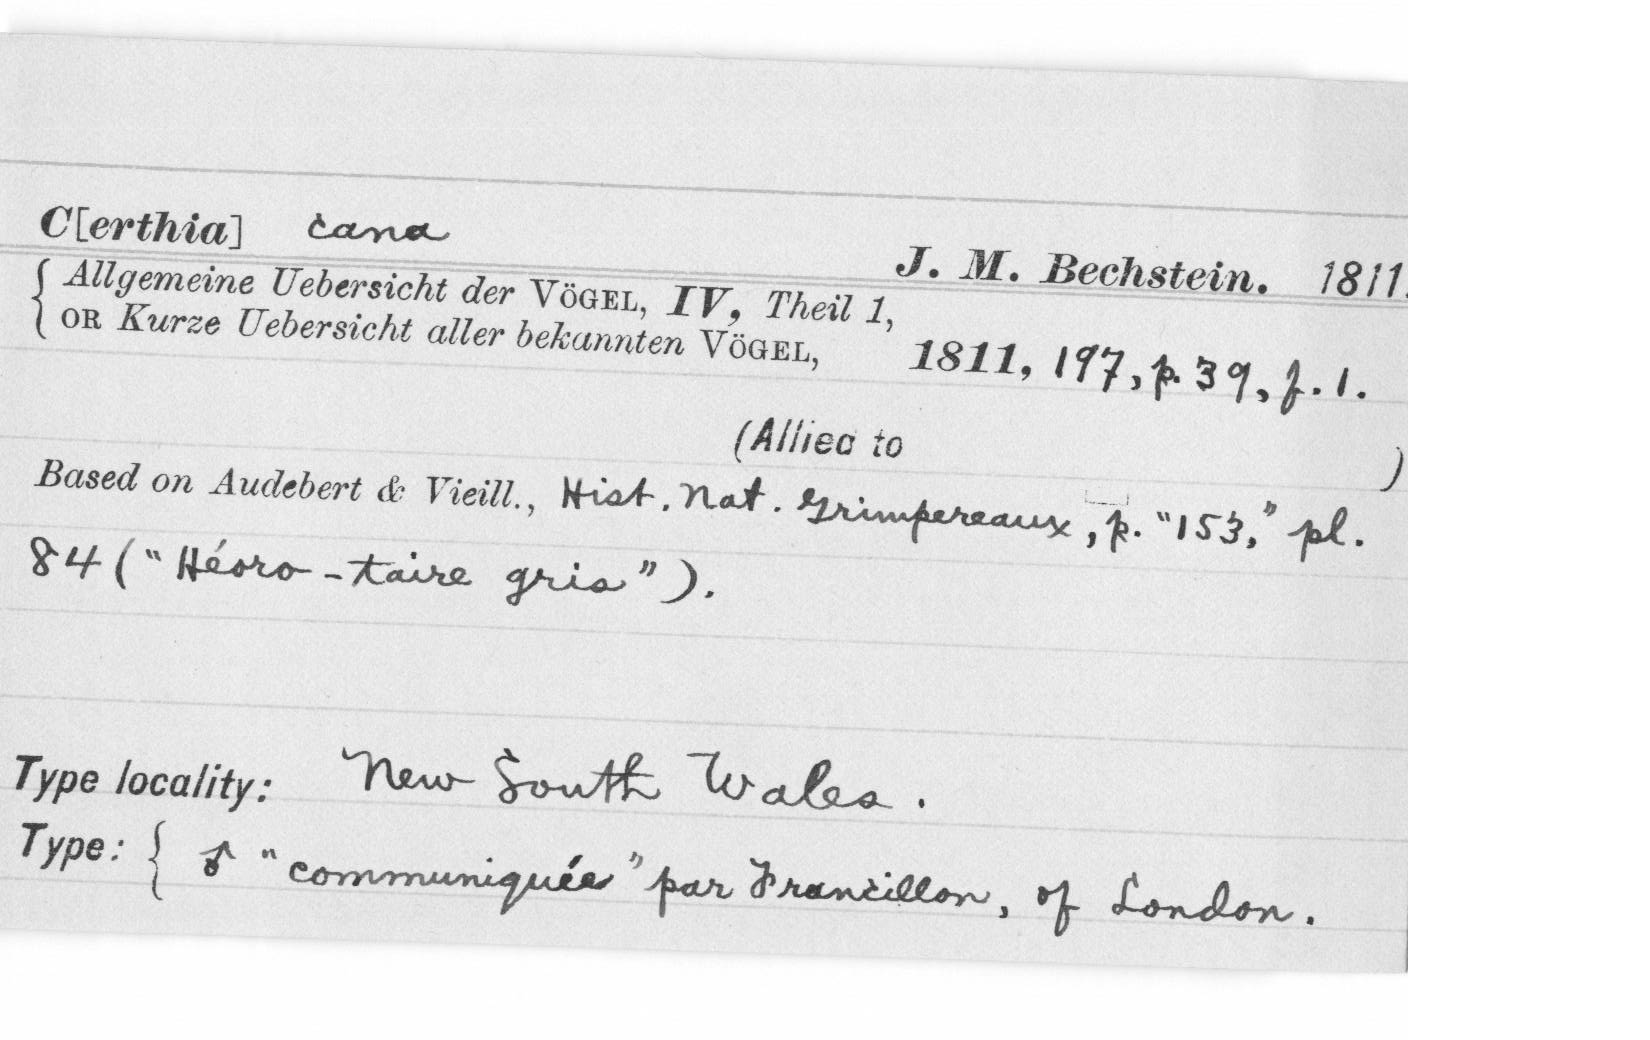 C[erthia] cana
J. M. Bechstein. 1811.
{ Allgemeine Uebersicht der VÖGEL, IV, Theil 1,
OR Kurze Uebersicht aller bekannten VÖGEL, 1811, 197, p. 39, f. 1.
(Allied to )
Based on Audebert & Vieill., Hist. Nat. Grimpereaux, p. "153," pl.
84 ("Héoro-taire gris").
Type locality: New South Wales.
Type: { ♂ "communiquée" par Francillon, of London.